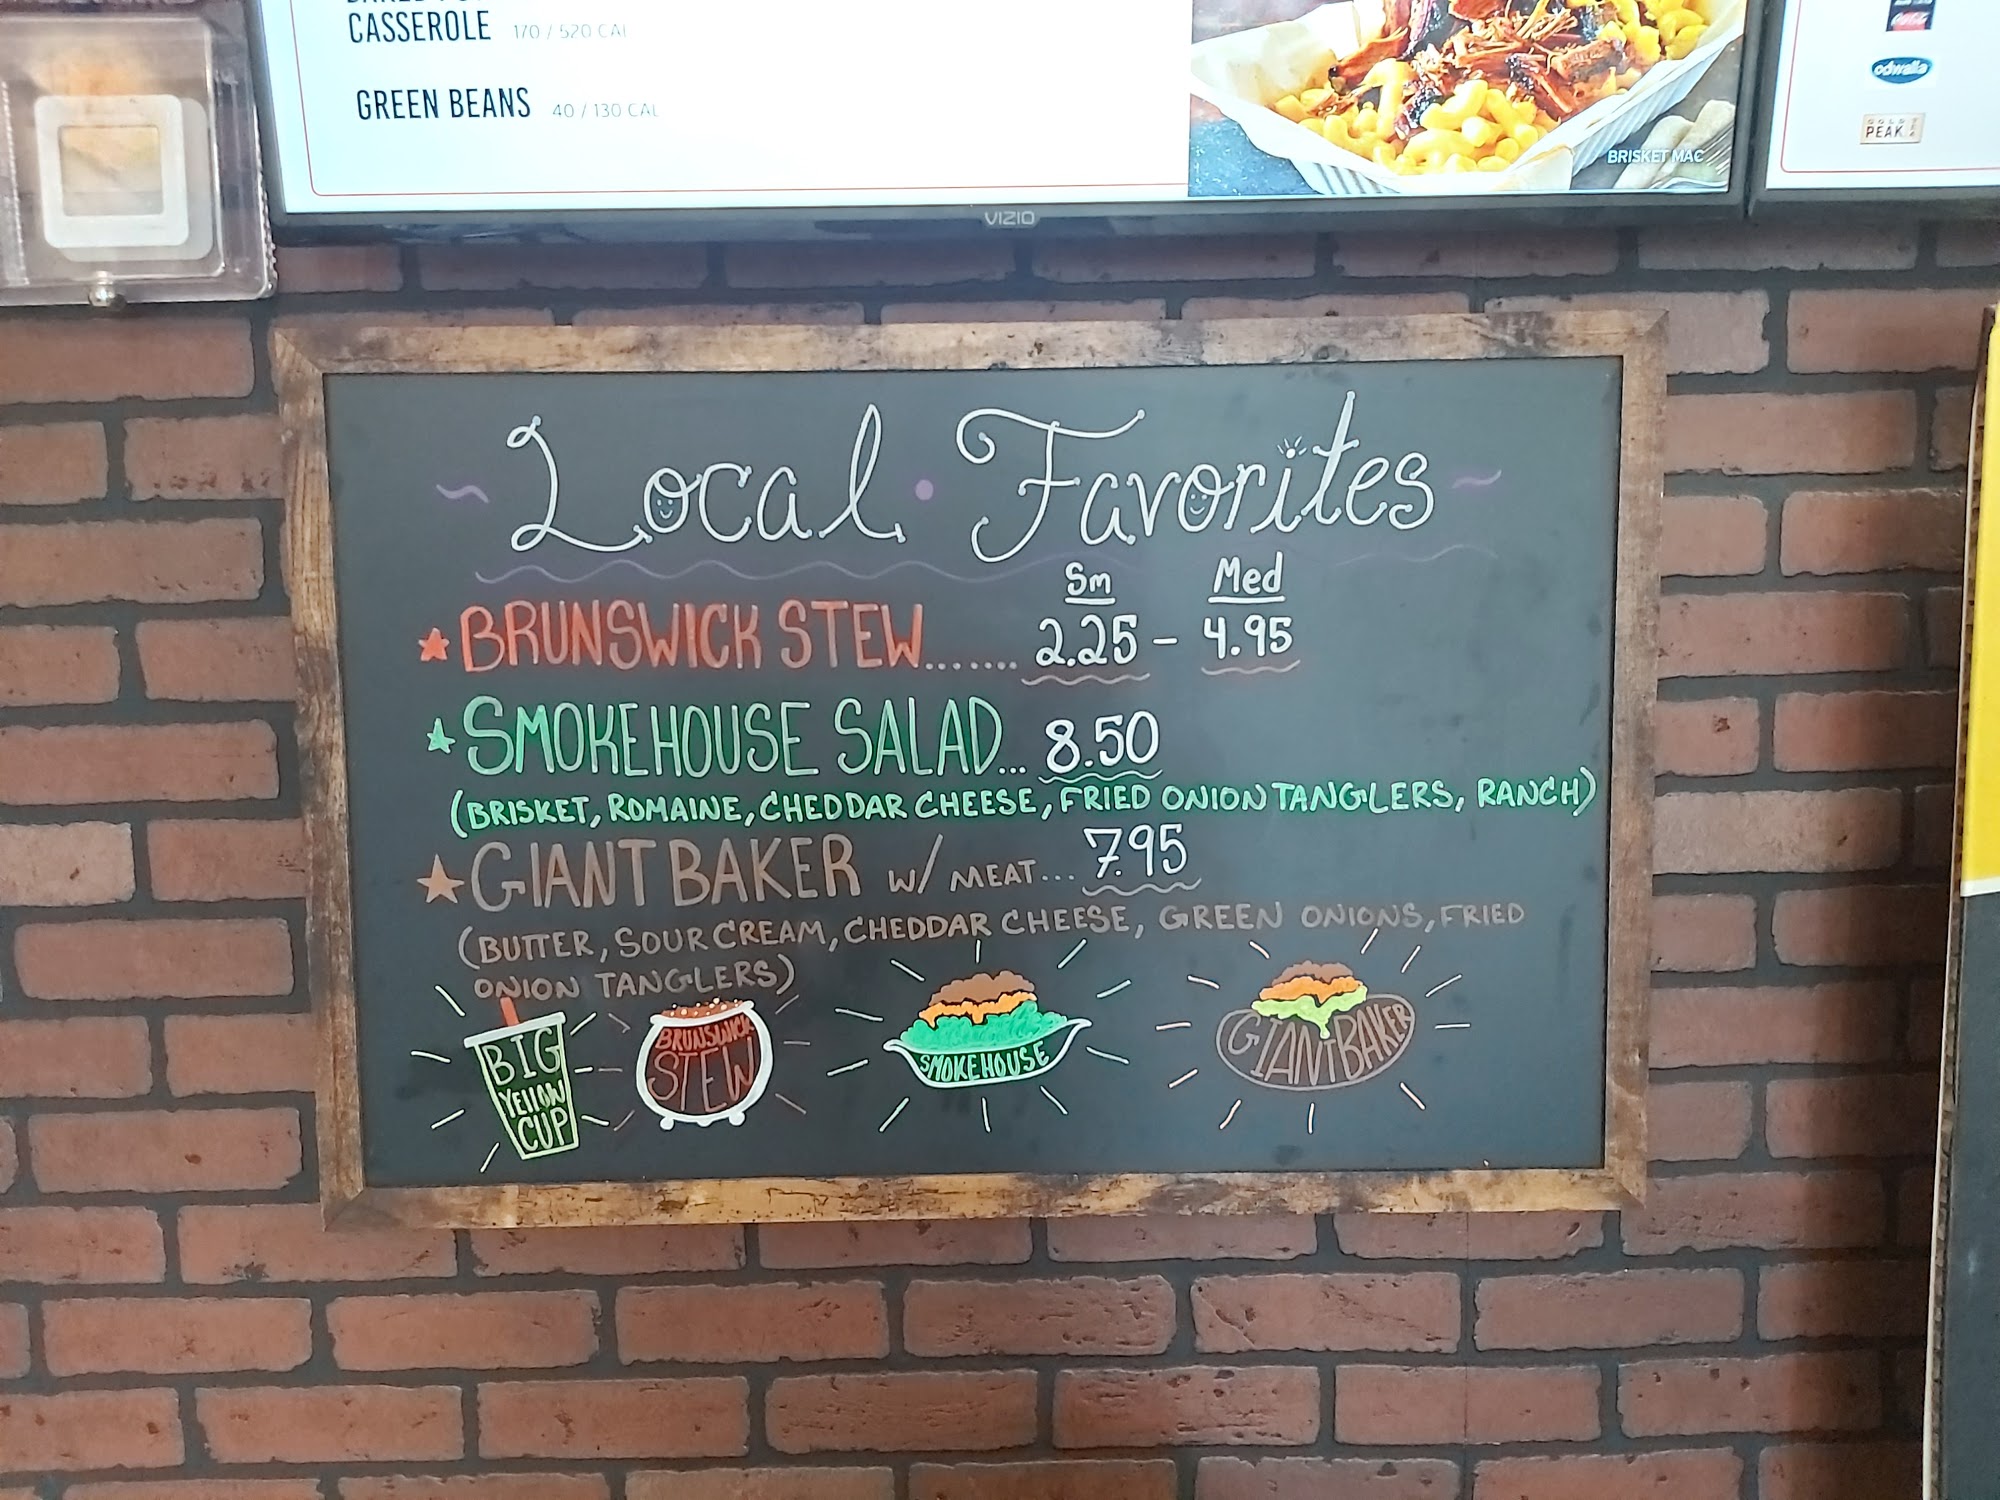 CASSEROLE 170 / 520 CAL
GREEN BEANS 40 / 130 CAL
BRISKET MAC
VIZIO
odwalla
GOLD PEAK TEA
Local • Favorites
Sm Med
BRUNSWICK STEW....... 2.25 - 4.95
SMOKEHOUSE SALAD... 8.50
(BRISKET, ROMAINE, CHEDDAR CHEESE, FRIED ONION TANGLERS, RANCH)
GIANT BAKER w/ MEAT... 7.95
(BUTTER, SOUR CREAM, CHEDDAR CHEESE, GREEN ONIONS, FRIED
ONION TANGLERS)
BIG
YELLOW
CUP
BRUNSWICK
STEW
SMOKEHOUSE
GIANT BAKER